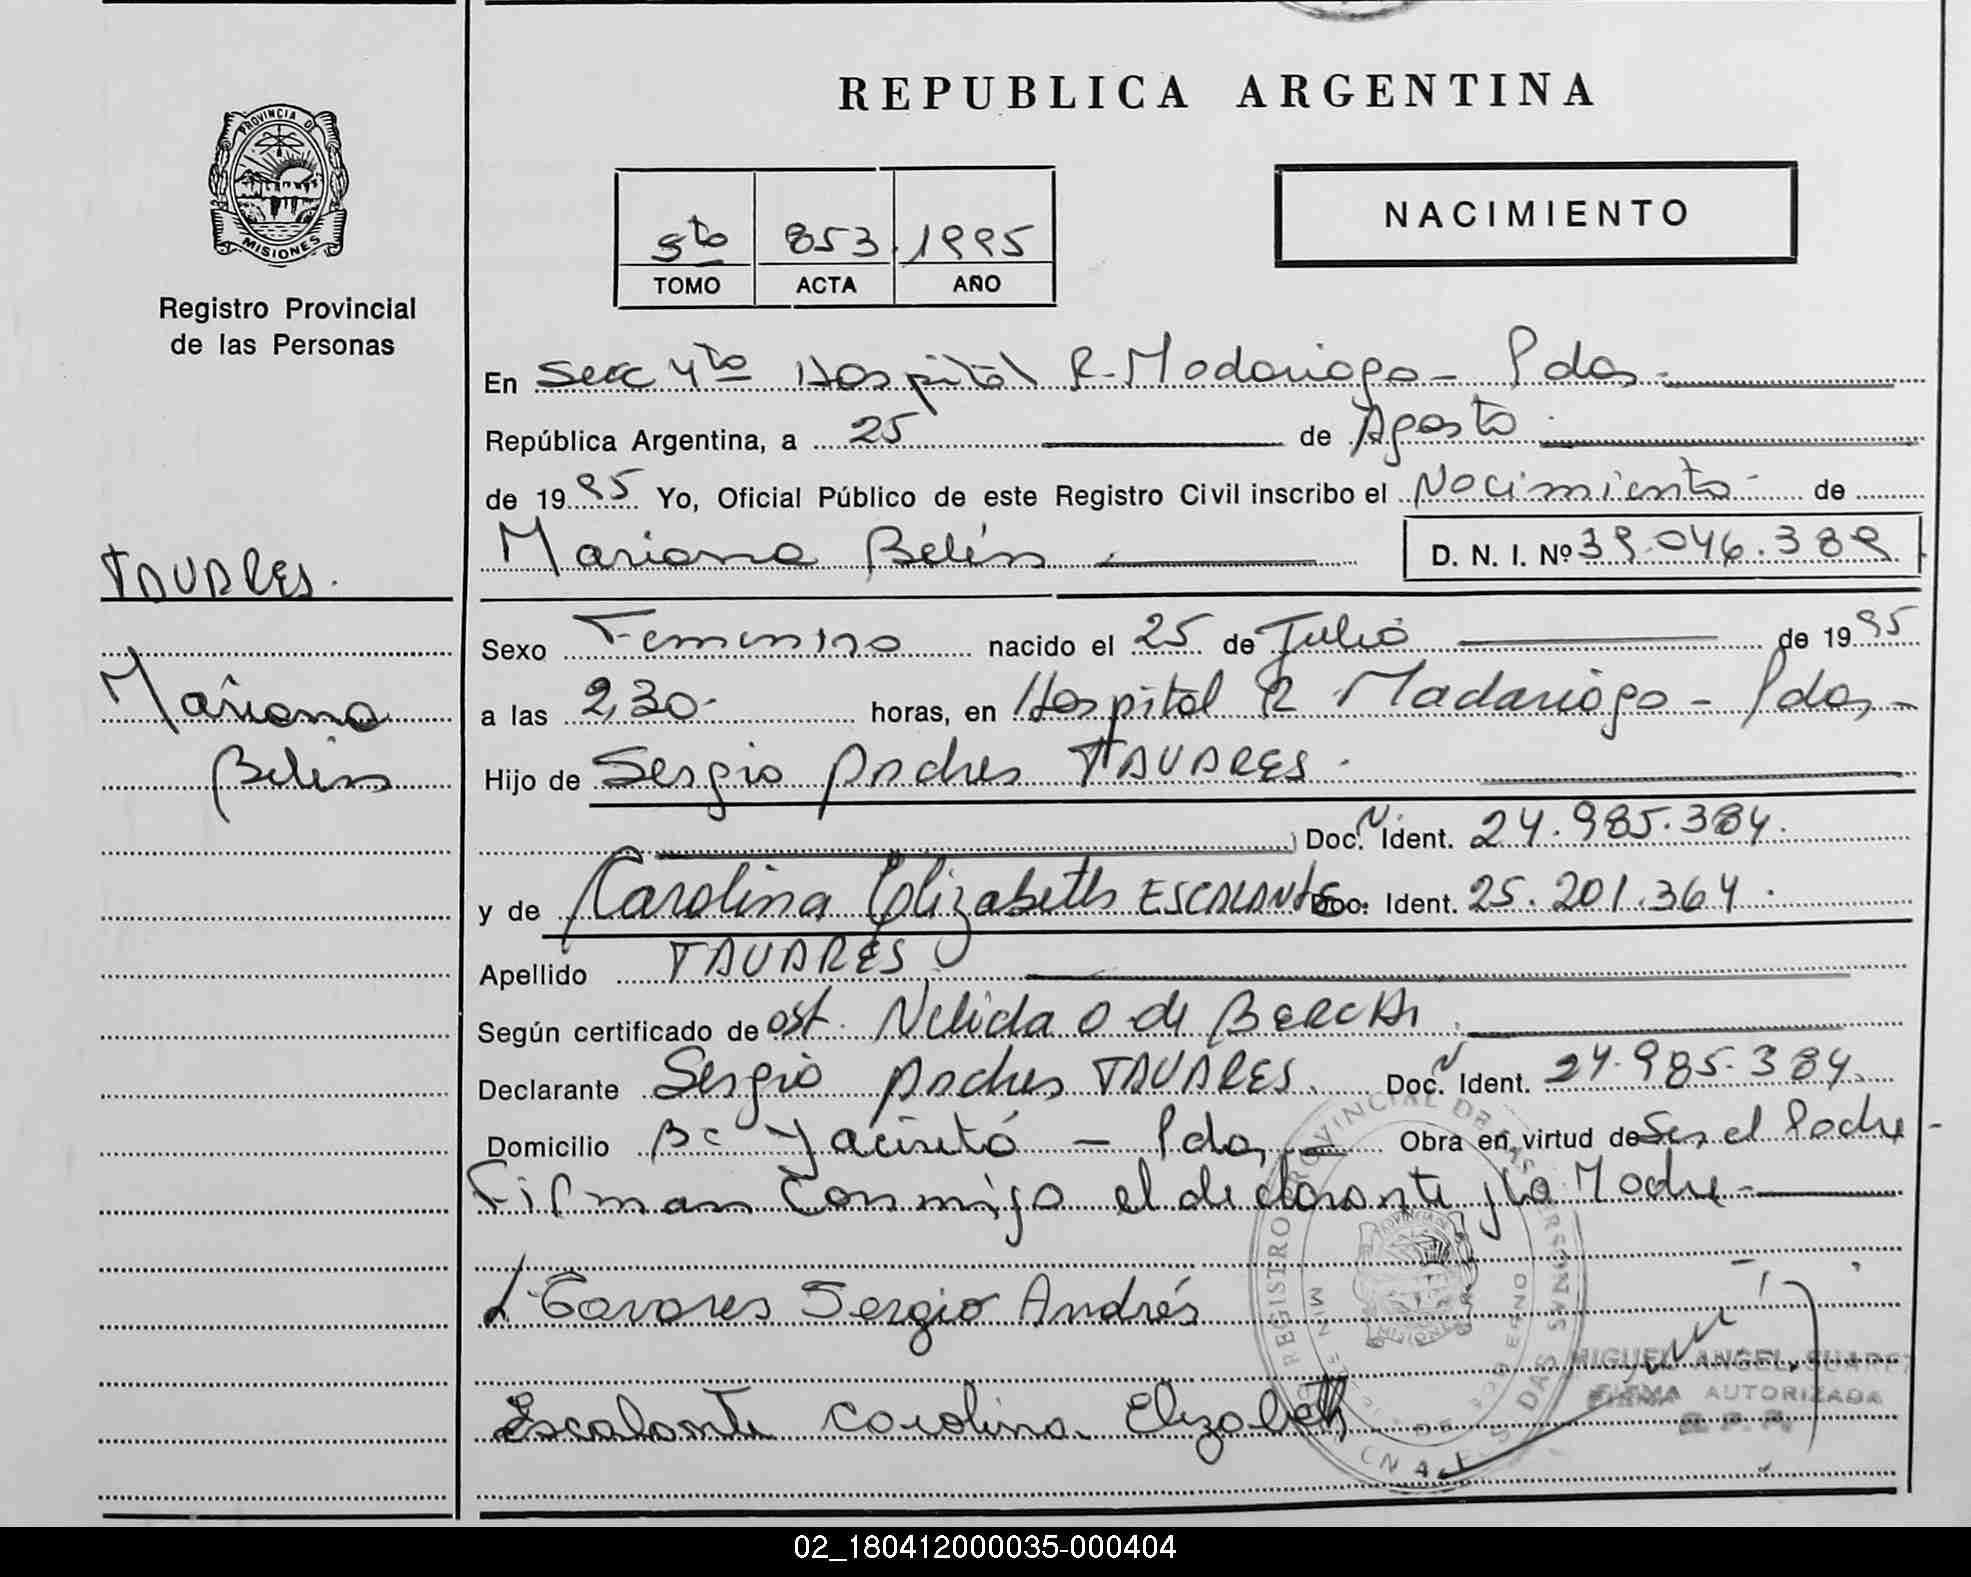 REPUBLICA ARGENTINA
PROVINCIA DE
MISIONES
Registro Provincial
de las Personas
5to 853 1995
TOMO ACTA AÑO
NACIMIENTO
En Secc 4to Hospital R. Madariaga - Pdas -
República Argentina, a 25 de Agosto
de 1995 Yo, Oficial Público de este Registro Civil inscribo el Nacimiento de
Mariana Belén D. N. I. Nº 39.046.389
TAVARES.
Mariana
Belén
Sexo Femenino nacido el 25 de Julio de 1995
a las 2,30 horas, en Hospital R Madariaga - Pdas, -
Hijo de Sergio Andres TAVARES.
Doc. N Ident. 24.985.384.
y de Carolina Elizabeth ESCALANTE Doc. Ident. 25.201.364.
Apellido TAVARES
Según certificado de ost. Nelida O de
Declarante Sergio Andres TAVARES. Doc. N Ident. 24.985.384.
Domicilio Bº Yacireta - Pdas, - Obra en virtud de Ser el Padre -
Firman Conmigo el declarante y la Madre -
Tavares Sergio Andrés
Escalante Carolina Elizabeth
REGISTRO PROVINCIAL DE LAS PERSONAS
MIGUEL ANGEL SUAREZ
FIRMA AUTORIZADA
R.P.P.
02_180412000035-000404